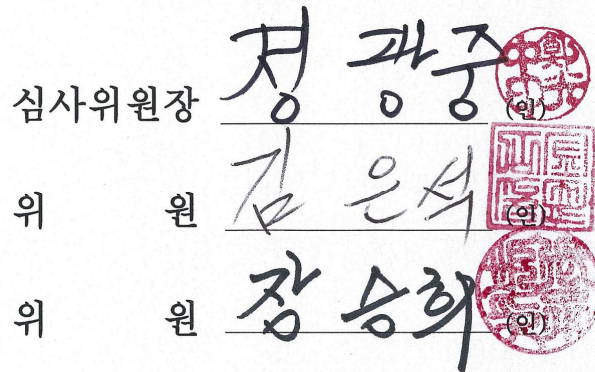 심사위원장 정 광중 (인)
위 원 김 은석 (인)
위 원 장 승희 (인)